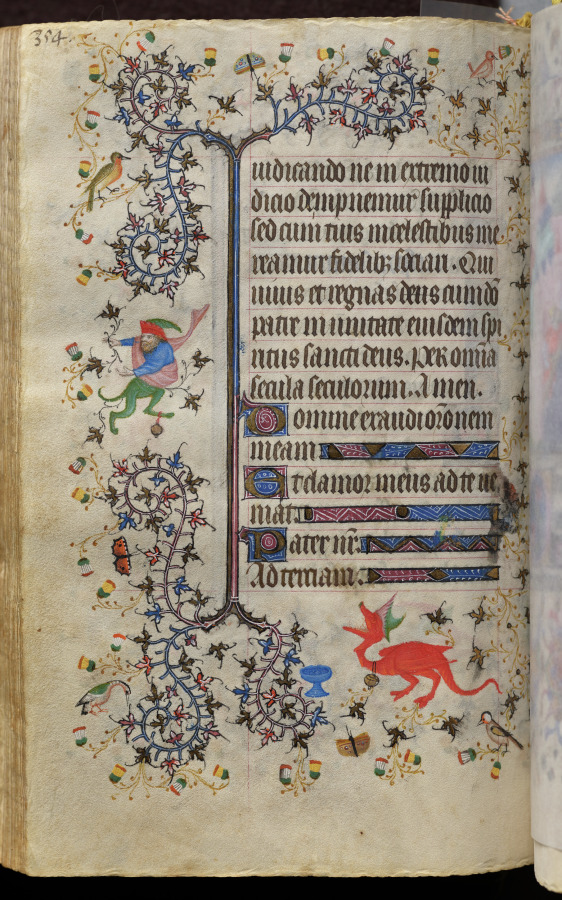 354.
iudicando ne in extremo iu
dicio dempnemur supplicio
sed cum tuis in celestibus me
reamur fidelibꝫ sociari. Qui
uiuis et regnas deus cum dō
patre in unitate eiusdem spi
ritus sancti deus. Per omīa
secula seculorum. Amen.
Domine exaudi orōnem
meam
Et clamor meus ad te ue
niat.
Pater nr̄.
Ad terciam.